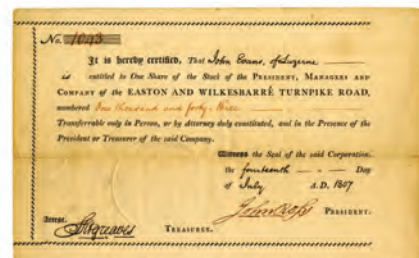 No. 1043
It is hereby certified, That John Evans, of Luzerne
is entitled to One Share of the Stock of the PRESIDENT, MANAGERS AND
COMPANY of the EASTON AND WILKESBARRÉ TURNPIKE ROAD,
numbered One thousand and forty three
Transferable only in Person, or by Attorney duly constituted, and in the Presence of the
President or Treasurer of the said Company.
Witness the Seal of the said Corporation,
the fourteenth Day
of July A.D. 1807
John Ross PRESIDENT.
ATTEST.
Sitgreaves TREASURER.